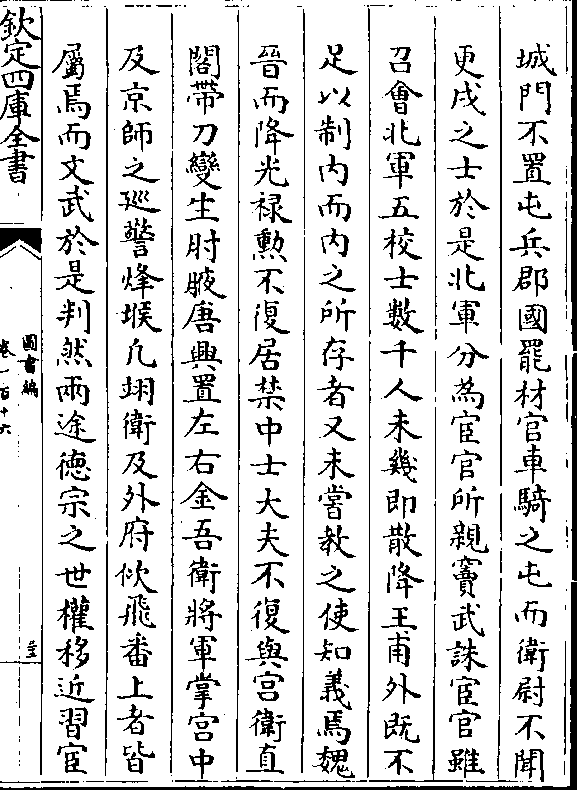 城門不置屯兵郡國罷材官車騎之屯而衛尉不聞
更戌之士於是北軍分為宦官所親竇武誅宦官雖
召會北軍五校士數千人未幾即散降王甫外既不
足以制内而内之所存者又未嘗教之使知義焉魏
晉而降光禄勲不復居禁中士大夫不復與宫衛直
閣帶刀變生肘腋唐興置左右金吾衛將軍掌宫中
及京師之廵警烽堠凢翊衛及外府佽飛番上者皆
屬焉而文武於是判然兩途徳宗之世權移近習宦
欽定四庫全書
圖書編
卷一百十六